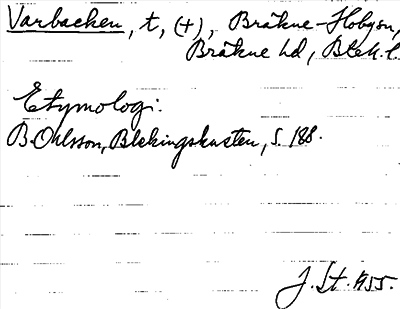 Varbacken, t, (+), Bräkne-Hoby sn,
Bräkne hd, Blek. l.
Etymologi:
B. Ohlsson, Blekingskusten, S. 188.
J. St. 1955.